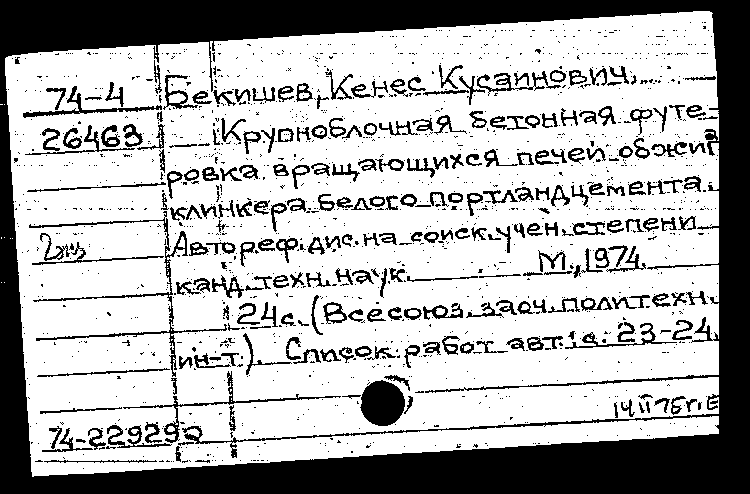 74-4 Бекишев, Кенес Кусаинович.
26463 Крупноблочная бетонная футе-
ровка вращающихся печей обжига
клинкера белого портландцемента.
2эк Автореф. дис. на соиск. учен. степени
канд. техн. наук. М., 1974.
24с. (Всесоюз. заоч. политехн.
ин-т). Список работ авт.: с. 23-24.
14 II 75г. Е
74-22929